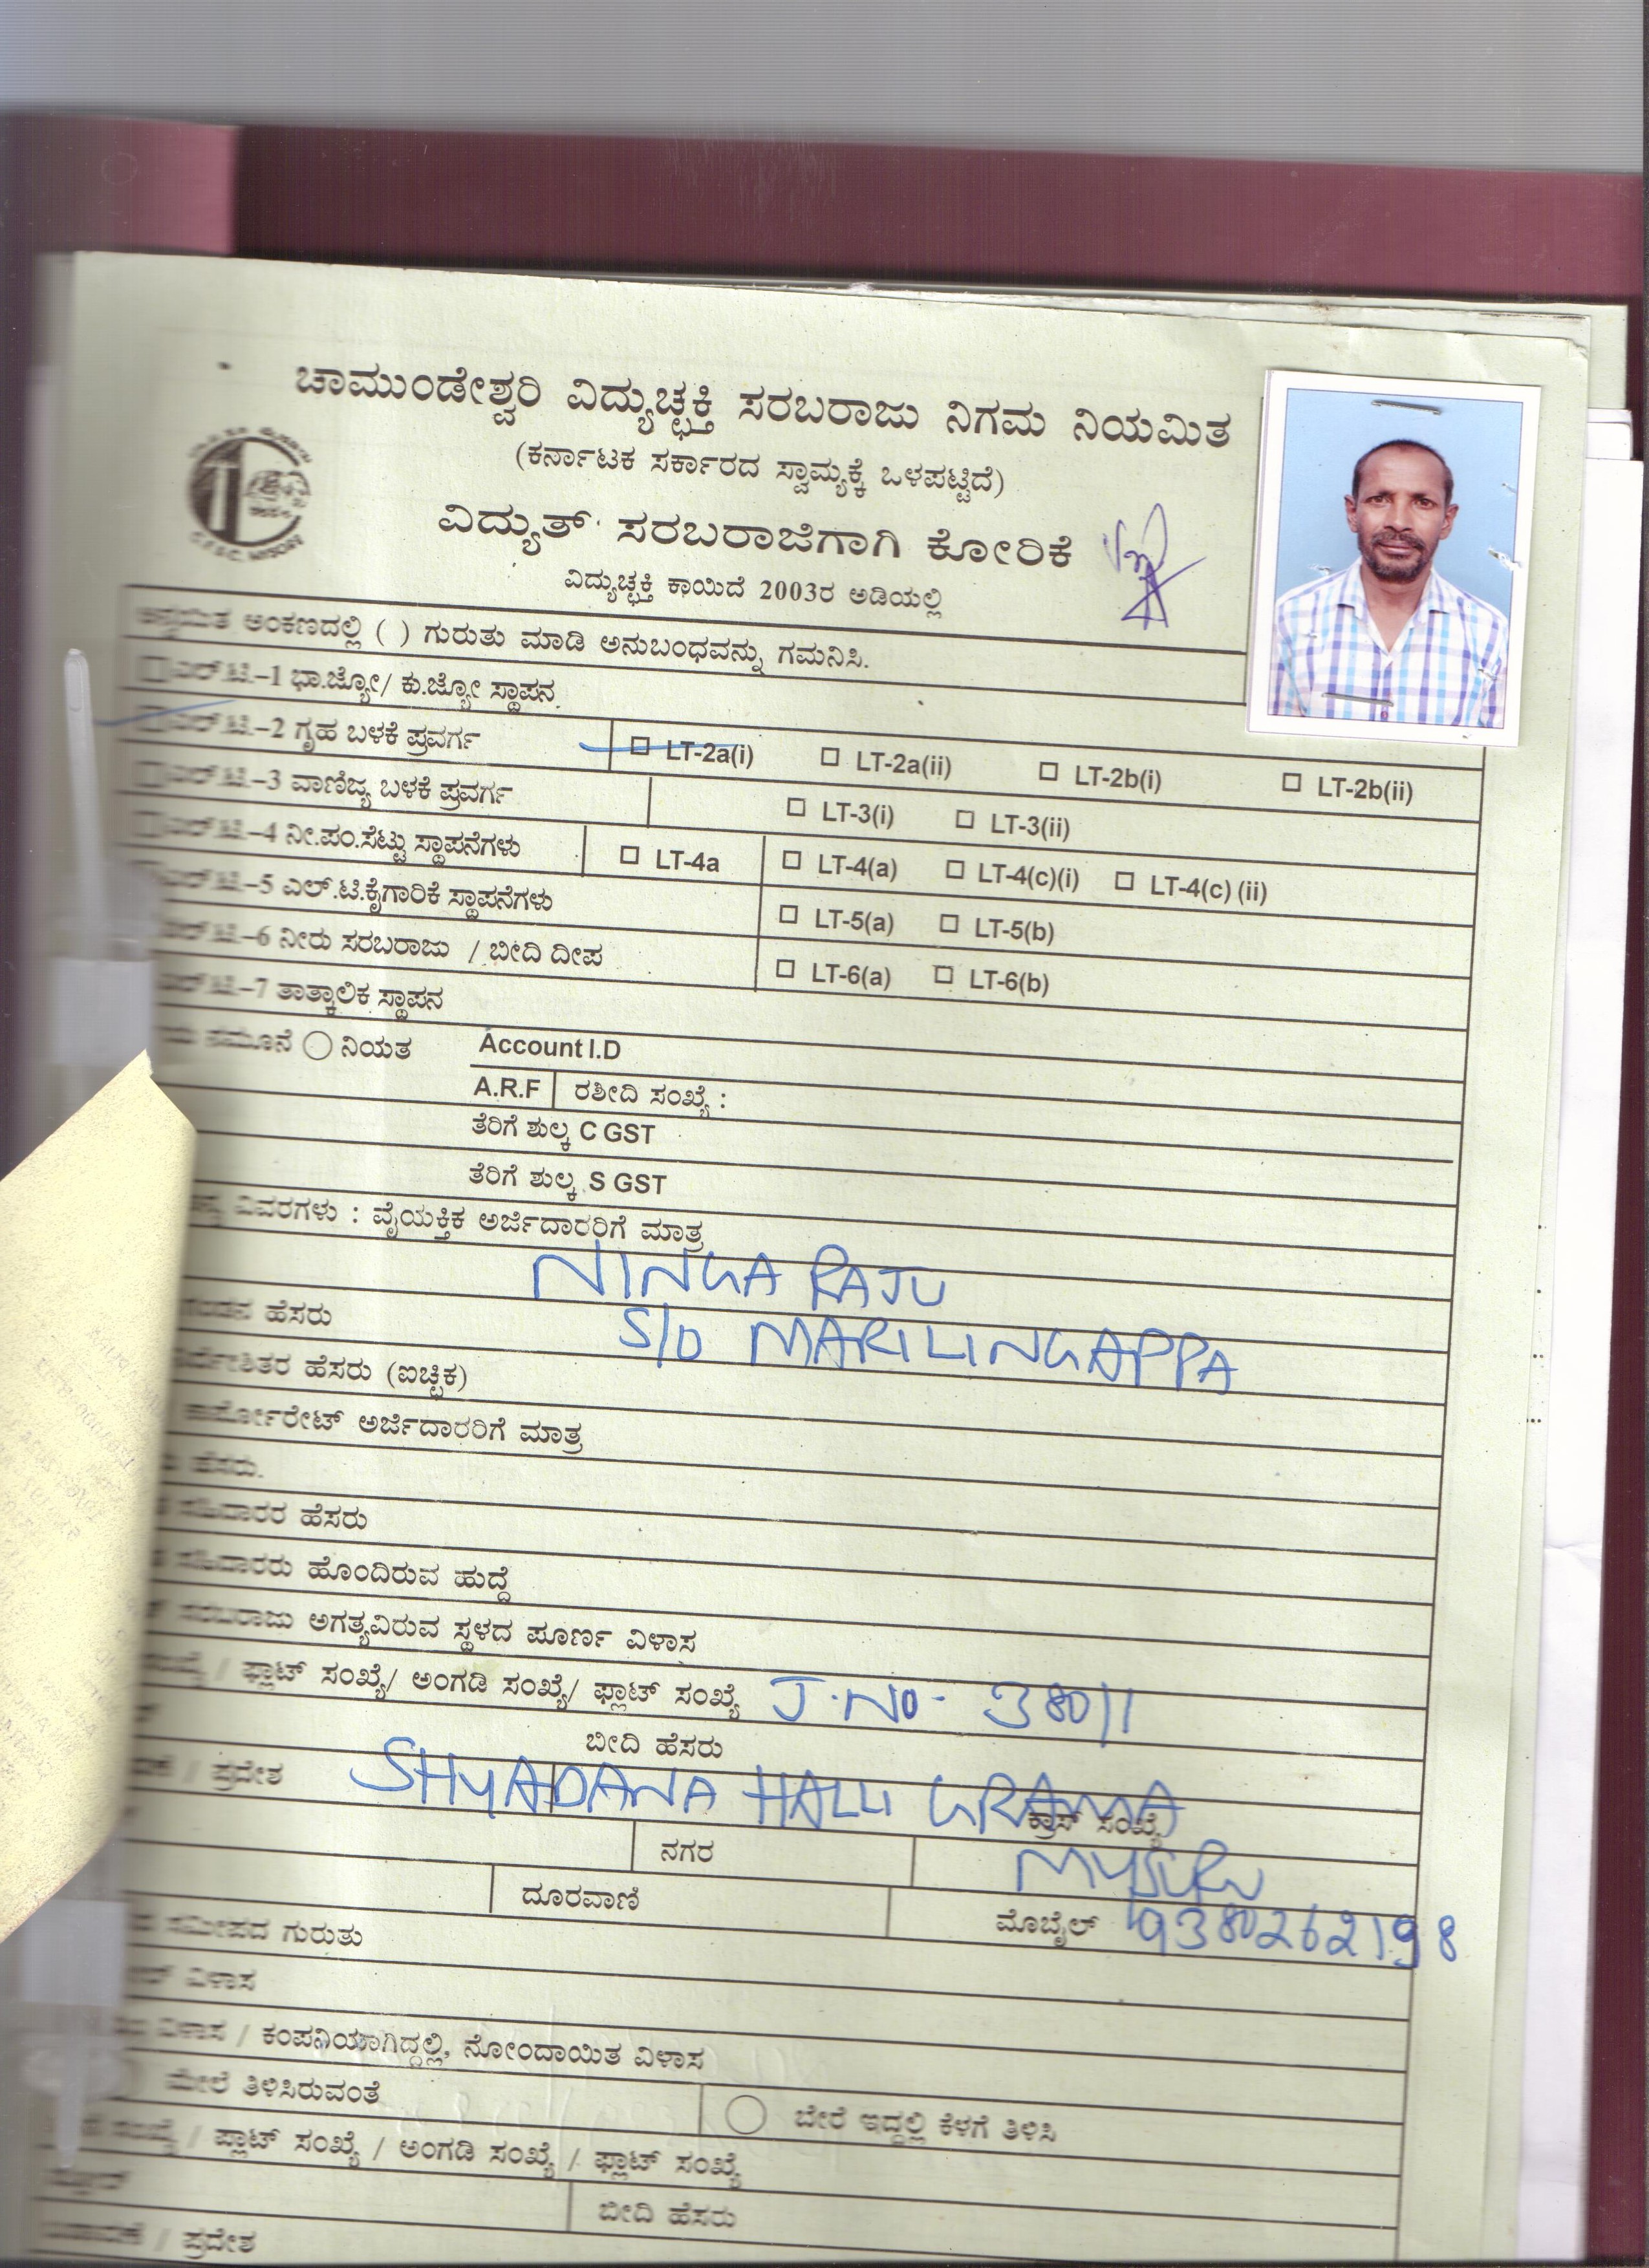 ಚಾಮುಂಡೇಶ್ವರಿ ವಿದ್ಯುಚ್ಛಕ್ತಿ ಸರಬರಾಜು ನಿಗಮ ನಿಯಮಿತ
(ಕರ್ನಾಟಕ ಸರ್ಕಾರದ ಸ್ವಾಮ್ಯಕ್ಕೆ ಒಳಪಟ್ಟಿದೆ)
ವಿದ್ಯುತ್ ಸರಬರಾಜಿಗಾಗಿ ಕೋರಿಕೆ
ವಿದ್ಯುಚ್ಛಕ್ತಿ ಕಾಯಿದೆ 2003ರ ಅಡಿಯಲ್ಲಿ
ಅನ್ವಯಿತ ಅಂಕಣದಲ್ಲಿ ( ) ಗುರುತು ಮಾಡಿ ಅನುಬಂಧವನ್ನು ಗಮನಿಸಿ.
ಎಲ್.ಟಿ.-1 ಭಾ.ಜ್ಯೋ/ ಕು.ಜ್ಯೋ ಸ್ಥಾಪನ
ಎಲ್.ಟಿ.-2 ಗೃಹ ಬಳಕೆ ಪ್ರವರ್ಗ LT-2a(i) LT-2a(ii) LT-2b(i) LT-2b(ii)
ಎಲ್.ಟಿ.-3 ವಾಣಿಜ್ಯ ಬಳಕೆ ಪ್ರವರ್ಗ LT-3(i) LT-3(ii)
ಎಲ್.ಟಿ.-4 ನೀ.ಪಂ.ಸೆಟ್ಟು ಸ್ಥಾಪನೆಗಳು LT-4a LT-4(a) LT-4(c)(i) LT-4(c) (ii)
ಎಲ್.ಟಿ.-5 ಎಲ್.ಟಿ.ಕೈಗಾರಿಕೆ ಸ್ಥಾಪನೆಗಳು LT-5(a) LT-5(b)
ಎಲ್.ಟಿ.-6 ನೀರು ಸರಬರಾಜು / ಬೀದಿ ದೀಪ LT-6(a) LT-6(b)
ಎಲ್.ಟಿ.-7 ತಾತ್ಕಾಲಿಕ ಸ್ಥಾಪನ
ನಮೂನೆ ನಿಯತ Account I.D
A.R.F ರಶೀದಿ ಸಂಖ್ಯೆ :
ತೆರಿಗೆ ಶುಲ್ಕ C GST
ತೆರಿಗೆ ಶುಲ್ಕ S GST
ವಿವರಗಳು : ವೈಯಕ್ತಿಕ ಅರ್ಜಿದಾರರಿಗೆ ಮಾತ್ರ
NINGA RAJU
ಹೆಸರು S/O MARILINGAPPA
ಹೆಸರು (ಐಚ್ಛಿಕ)
ಕಾರ್ಪೋರೇಟ್ ಅರ್ಜಿದಾರರಿಗೆ ಮಾತ್ರ
ಹೆಸರು.
ಹೆಸರು
ಹೊಂದಿರುವ ಹುದ್ದೆ
ಸರಬರಾಜು ಅಗತ್ಯವಿರುವ ಸ್ಥಳದ ಪೂರ್ಣ ವಿಳಾಸ
/ ಪ್ಲಾಟ್ ಸಂಖ್ಯೆ/ ಅಂಗಡಿ ಸಂಖ್ಯೆ/ ಫ್ಲಾಟ್ ಸಂಖ್ಯೆ J.NO- 380/1
ಬೀದಿ ಹೆಸರು
/ ಪ್ರದೇಶ SHYADANA HALLI GRAMA
ಕ್ರಾಸ್ ಸಂಖ್ಯೆ
ನಗರ MYSURU
ದೂರವಾಣಿ ಮೊಬೈಲ್ 9380262198
ಸಮೀಪದ ಗುರುತು
ವಿಳಾಸ
ವಿಳಾಸ / ಕಂಪನಿಯಾಗಿದ್ದಲ್ಲಿ, ನೋಂದಾಯಿತ ವಿಳಾಸ
ಮೇಲೆ ತಿಳಿಸಿರುವಂತೆ ಬೇರೆ ಇದ್ದಲ್ಲಿ ಕೆಳಗೆ ತಿಳಿಸಿ
ಸಂಖ್ಯೆ / ಪ್ಲಾಟ್ ಸಂಖ್ಯೆ / ಅಂಗಡಿ ಸಂಖ್ಯೆ / ಫ್ಲಾಟ್ ಸಂಖ್ಯೆ
ಬೀದಿ ಹೆಸರು
/ ಪ್ರದೇಶ